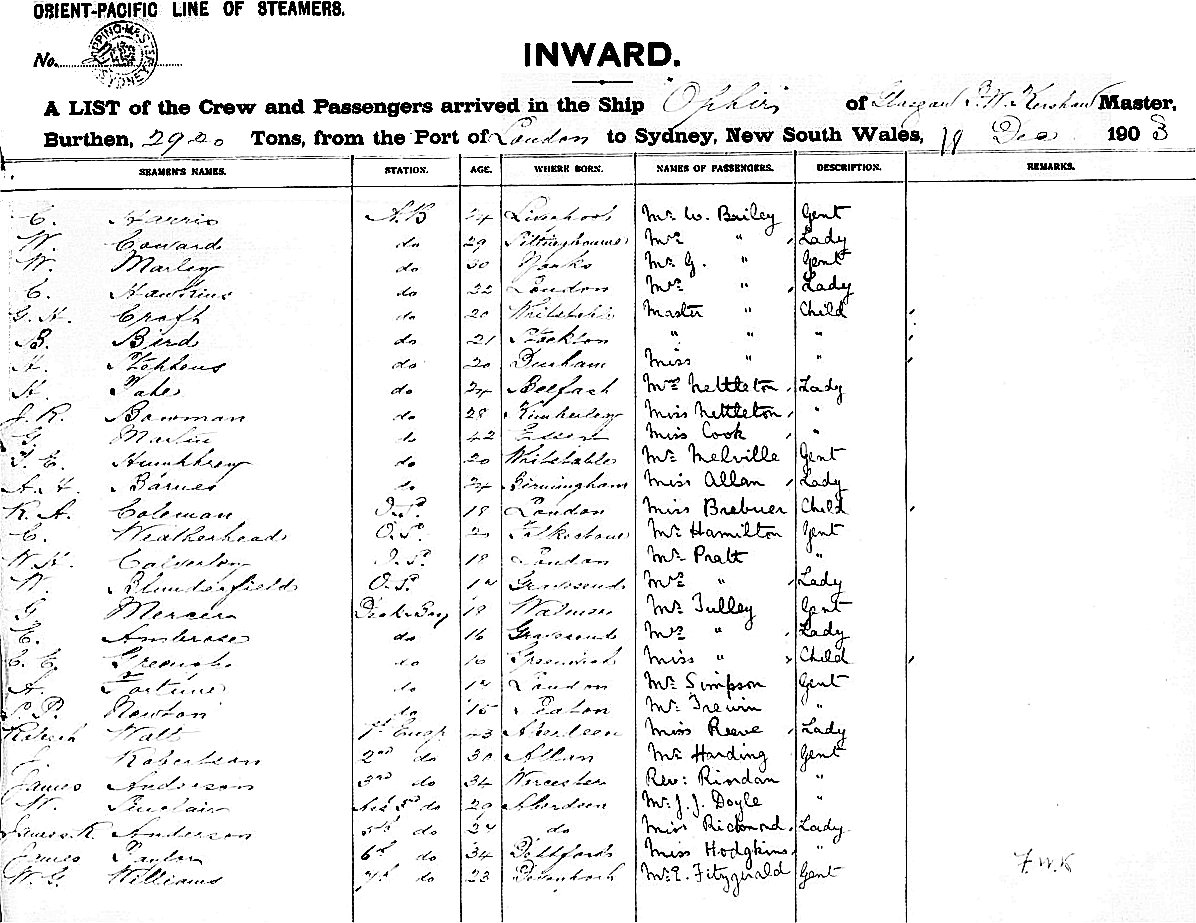 ORIENT-PACIFIC LINE OF STEAMERS.
No.
SHIPPING MASTER SYDNEY
INWARD.
A LIST of the Crew and Passengers arrived in the Ship "Ophir" of Glasgow F. W. Kershaw Master,
Burthen, 2920 Tons, from the Port of London to Sydney, New South Wales, 1903
SEAMEN'S NAMES. STATION. AGE. WHERE BORN. NAMES OF PASSENGERS. DESCRIPTION. REMARKS.
C. Harris A.B 24 Mr. W. Bailey Gent
W. Coward do 29 Sittingbourne Mrs " Lady
W. Marley do 30 Yorks Mr. G. " Gent
C. Hawkins do 22 London Mrs " Lady
G. H. Croft do 20 Whitstable Master " Child
B. Bird do 21 Stockton " " "
H. Stephens do 20 Durham Miss " "
H. do 24 Belfast Mrs Nettleton Lady
J. R. Bowman do 28 Kimberley Miss Nettleton "
G. Martin do 42 Essex Miss Cook "
T. E. Humphrey do 20 Whitstable Mr. Melville Gent
A. H. Barnes do 24 Birmingham Miss Allan Lady
R. A. Coleman O.S. 18 London Miss Brebner Child
C. Weatherhead O.S. Folkestone Mr. Hamilton Gent
W. H. Calverley O.S. 18 London Mr. Pratt "
W. Blunderfield O.S. Gravesend Mrs " Lady
G. Mercer Deck Boy 18 Mr. Tulley Gent
E. Ambrose do 16 Gravesend Mrs " Lady
C. E. do 16 Greenwich Miss " Child
A. Fortune do London Mr. Simpson Gent
Newton do 15 Mr. Trewin "
Watt 1st Engr Aberdeen Miss Reeve Lady
J. Robertson 2nd do 30 Mr. Harding Gent
James Anderson 3rd do 34 Worcester Rev: Riordan "
W. Sinclair do 29 Aberdeen Mr. J. J. Doyle "
James K. Anderson 5th do 27 do Miss Richmond Lady
James Taylor 6th do 34 Miss Hodgkins "
W. G. Williams 7th do 23 Mr. E. Fitzgerald Gent F.W.K